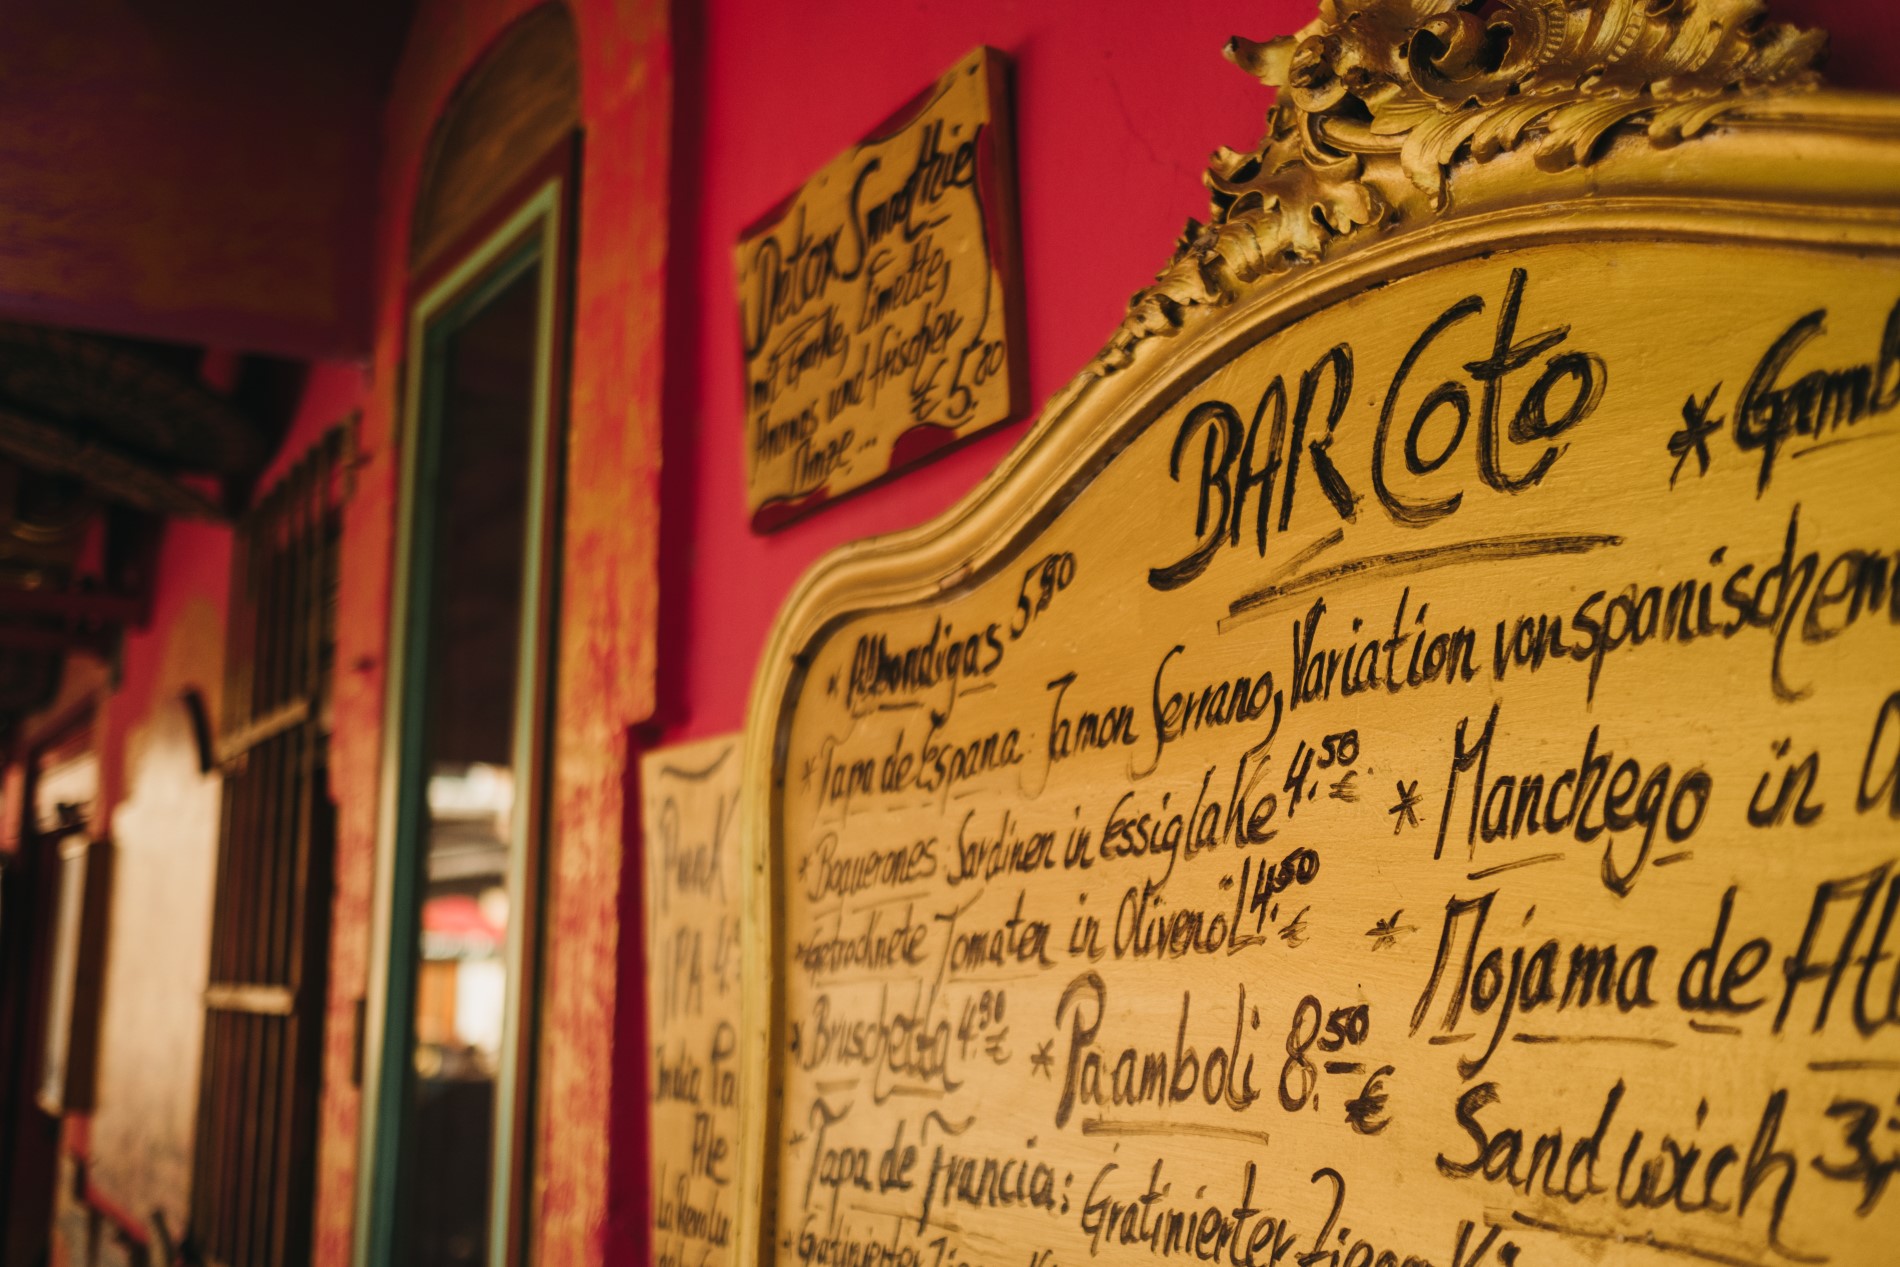 Detox Smothie
mit Gurke, Limette,
Ananas und frischer
Minze... € 5.80
BAR Coto
* Albondigas 5,80
* Tapa de Espana: Jamon Serrano, Variation von spanischem
* Boquerones: Sardinen in Essiglake 4.50 €
* Getrocknete Tomaten in Olivenöl 4.50 €
* Bruschetta 4.90 €
* Paamboli 8.50 €
* Tapa de Francia: Gratinierter
* Gratinierter
* Manchego in
* Mojama de
Sandwich 3,
Punk
IPA
India Pa
Ale